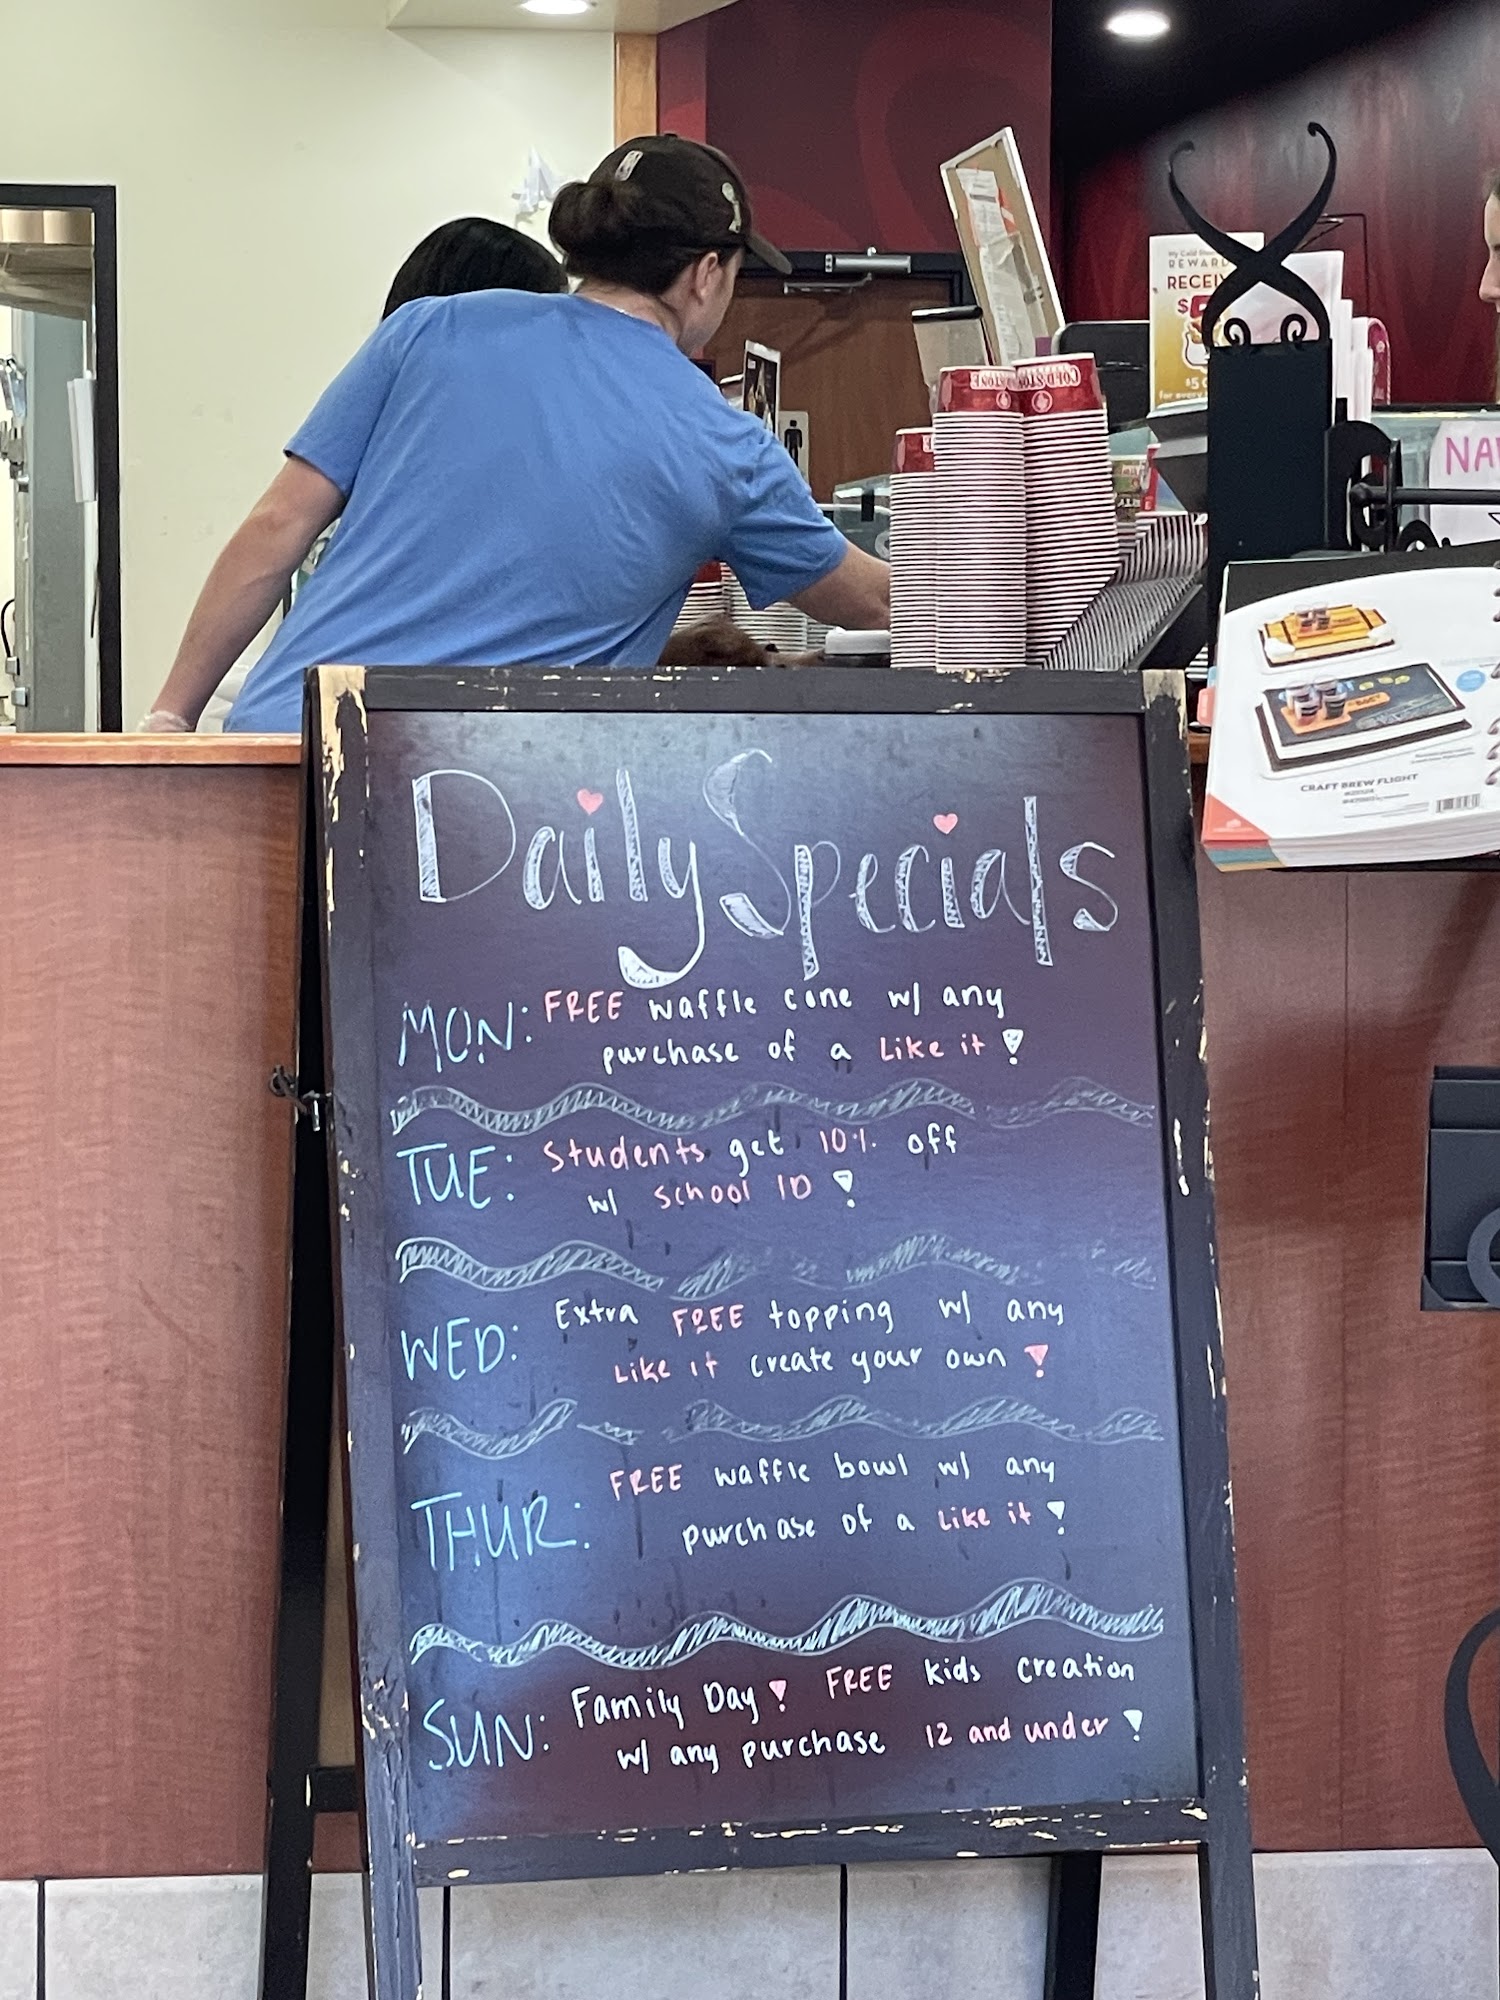 My Cold Stone
REWARD
RECEI
$5
COLD STONE
NA
CRAFT BREW FLIGHT
Daily Specials
MON: FREE waffle cone w/ any
purchase of a Like it!
TUE: Students get 10% off
w/ School ID!
WED: Extra FREE topping w/ any
Like it create your own!
THUR: FREE waffle bowl w/ any
purchase of a Like it!
SUN: Family Day! FREE kids creation
w/ any purchase 12 and under!